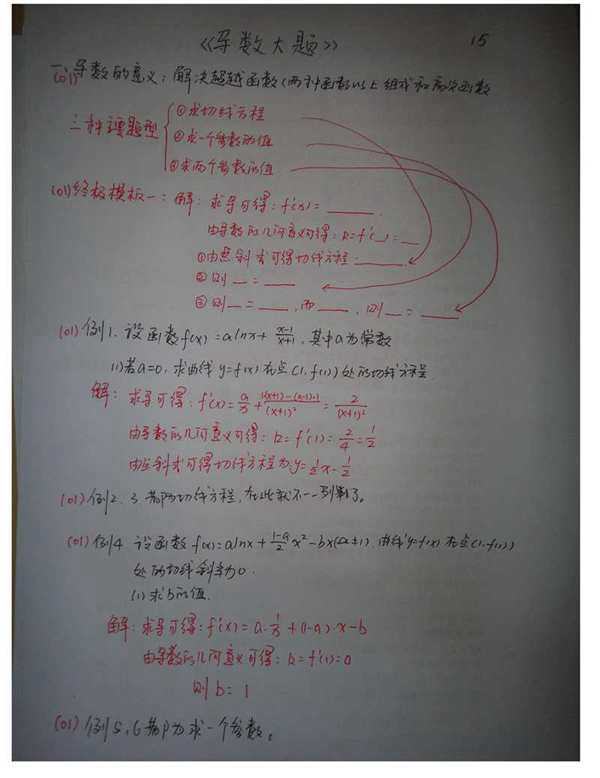 《导数大题》 15
一、导数的意义:解决超越函数(两种函数以上组成和高次函数
(01)
三种課题型 ①求切线方程
②求一个参数的值
③求两个参数的值
(01)终极模板一:解:求导可得:f'(x)=____.
由导数的几何意义可得:k=f'(_)=__
①由点斜式可得切线方程:____
②则__=____
③则__=____,而____,则__=____
(01)例1.设函数f(x)=alnx+\frac{x-1}{x+1},其中a为常数
(1)若a=0,求曲线y=f(x)在点(1,f(1))处的切线方程
解:求导可得:f'(x)=\frac{a}{x}+\frac{1(x+1)-(x-1)·1}{(x+1)^2}=\frac{2}{(x+1)^2}
由导数的几何意义可得:k=f'(1)=\frac{2}{4}=\frac{1}{2}
由点斜式可得切线方程为:y=\frac{1}{2}x-\frac{1}{2}
(01)例2.3都为切线方程,在此就不一一列举了。
(01)例4 设函数f(x)=alnx+\frac{1-a}{2}x²-bx(a≠1).曲线y=f(x)在点(1,f(1))
处的切线斜率为0.
(1)求b的值.
解:求导可得:f'(x)=a·\frac{1}{x}+(1-a)·x-b
由导数的几何意义可得:k=f'(1)=0
则b=1
(01)例5,6都为求一个参数。